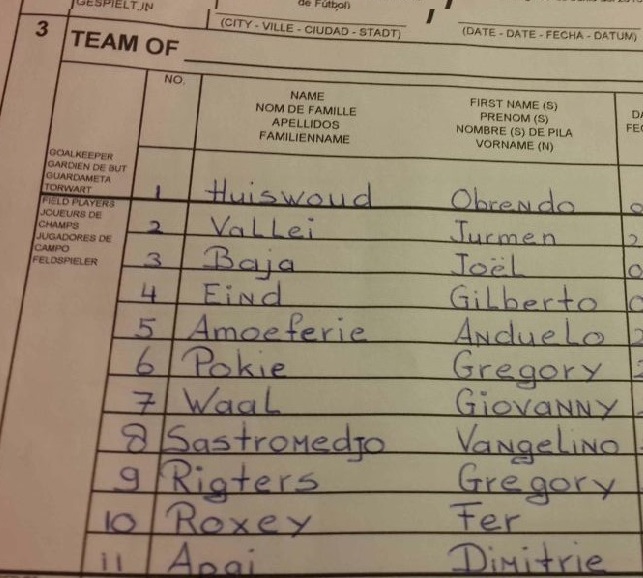 GESPIELT IN
de Fútbol)
(CITY - VILLE - CIUDAD - STADT)
(DATE - DATE - FECHA - DATUM)
3 TEAM OF
NO.
NAME
NOM DE FAMILLE
APELLIDOS
FAMILIENNAME
FIRST NAME (S)
PRENOM (S)
NOMBRE (S) DE PILA
VORNAME (N)
GOALKEEPER
GARDIEN DE BUT
GUARDAMETA
TORWART
FIELD PLAYERS
JOUEURS DE
CHAMPS
JUGADORES DE
CAMPO
FELDSPIELER
1 Huiswoud Obrendo
2 Vallei Jurmen
3 Baja Joël
4 Eind Gilberto
5 Amoeferie Anduelo
6 Pokie Gregory
7 Waal Giovanny
8 Sastromedjo Vangelino
9 Rigters Gregory
10 Roxey Fer
11 Apai Dimitrie